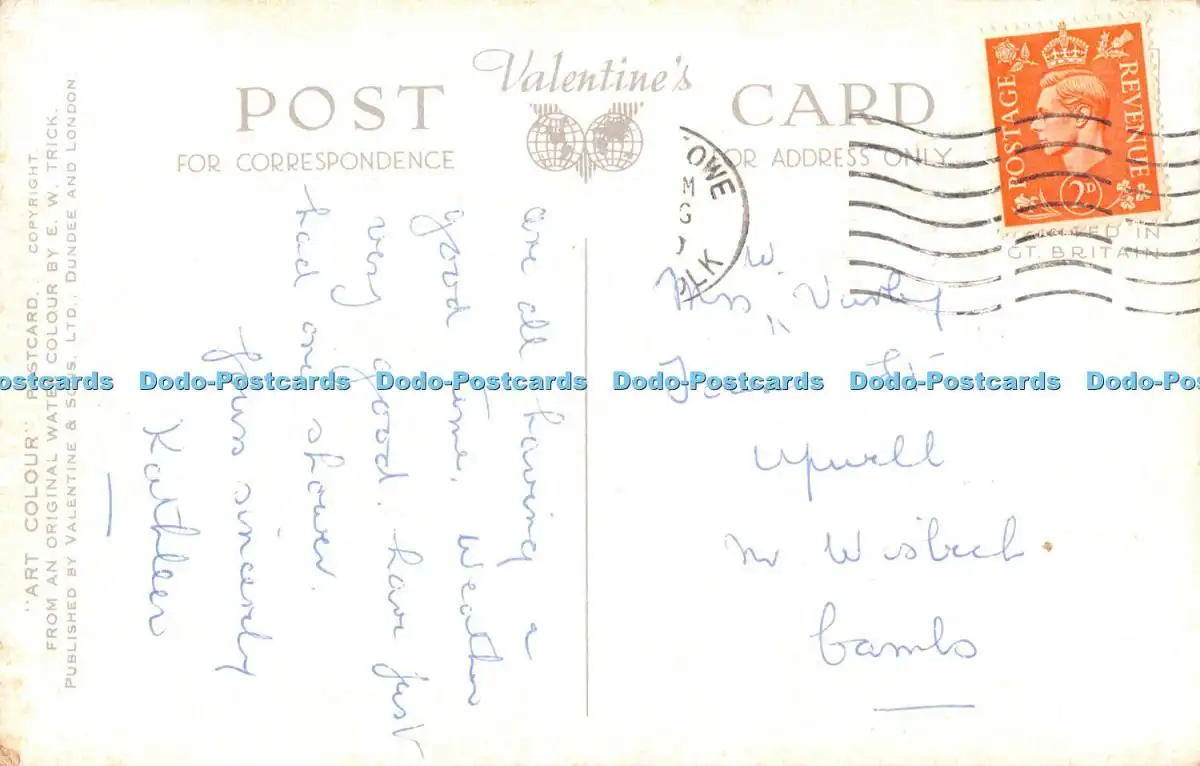 Valentine's
POST CARD
FOR CORRESPONDENCE
FOR ADDRESS ONLY
POSTAGE REVENUE
2D
PRINTED IN
GT. BRITAIN
OWE
M
LK
are all having a
good time. Weather
very good. have just
had one shower.
Yours sincerely
Kathleen
W.
Miss
Upwell
Nr Wisbech
Cambs
"ART COLOUR" POSTCARD. COPYRIGHT.
FROM AN ORIGINAL WATER COLOUR BY E. W. TRICK.
PUBLISHED BY VALENTINE & SONS, LTD., DUNDEE AND LONDON
ostcards Dodo-Postcards Dodo-Postcards Dodo-Postcards Dodo-Postcards Dodo-Post